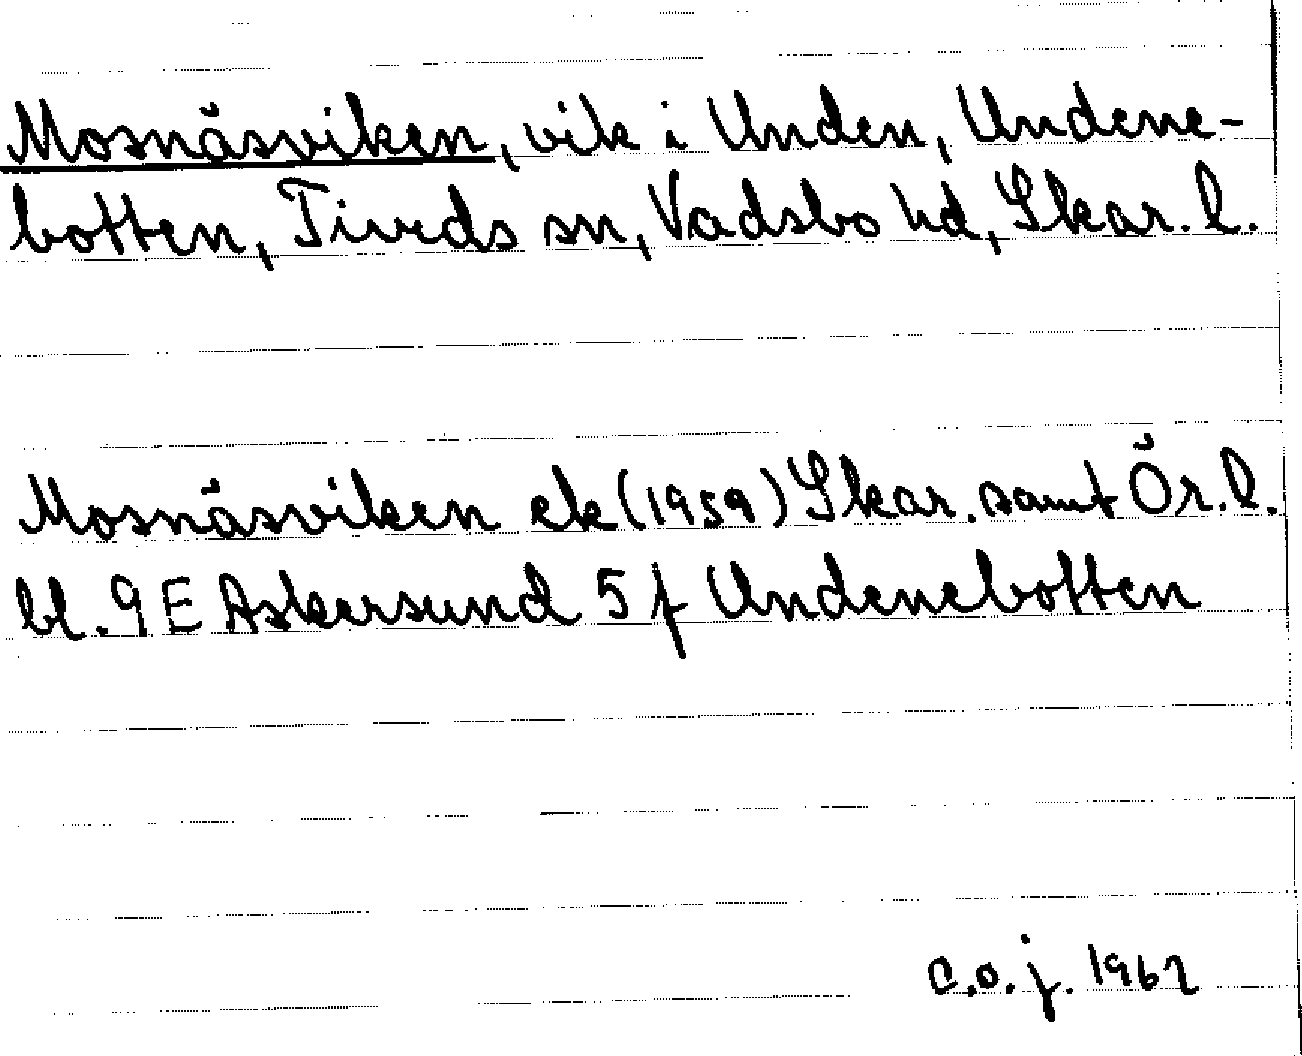 Mosnäsviken, vik i Unden, Undene-
botten, Tiveds sn, Vadsbo hd, Skar. l.
Mosnäsviken ek (1959) Skar. samt Ör. l.
bl. 9 E Askersund 5 f Undenebotten
C.O.J. 1962